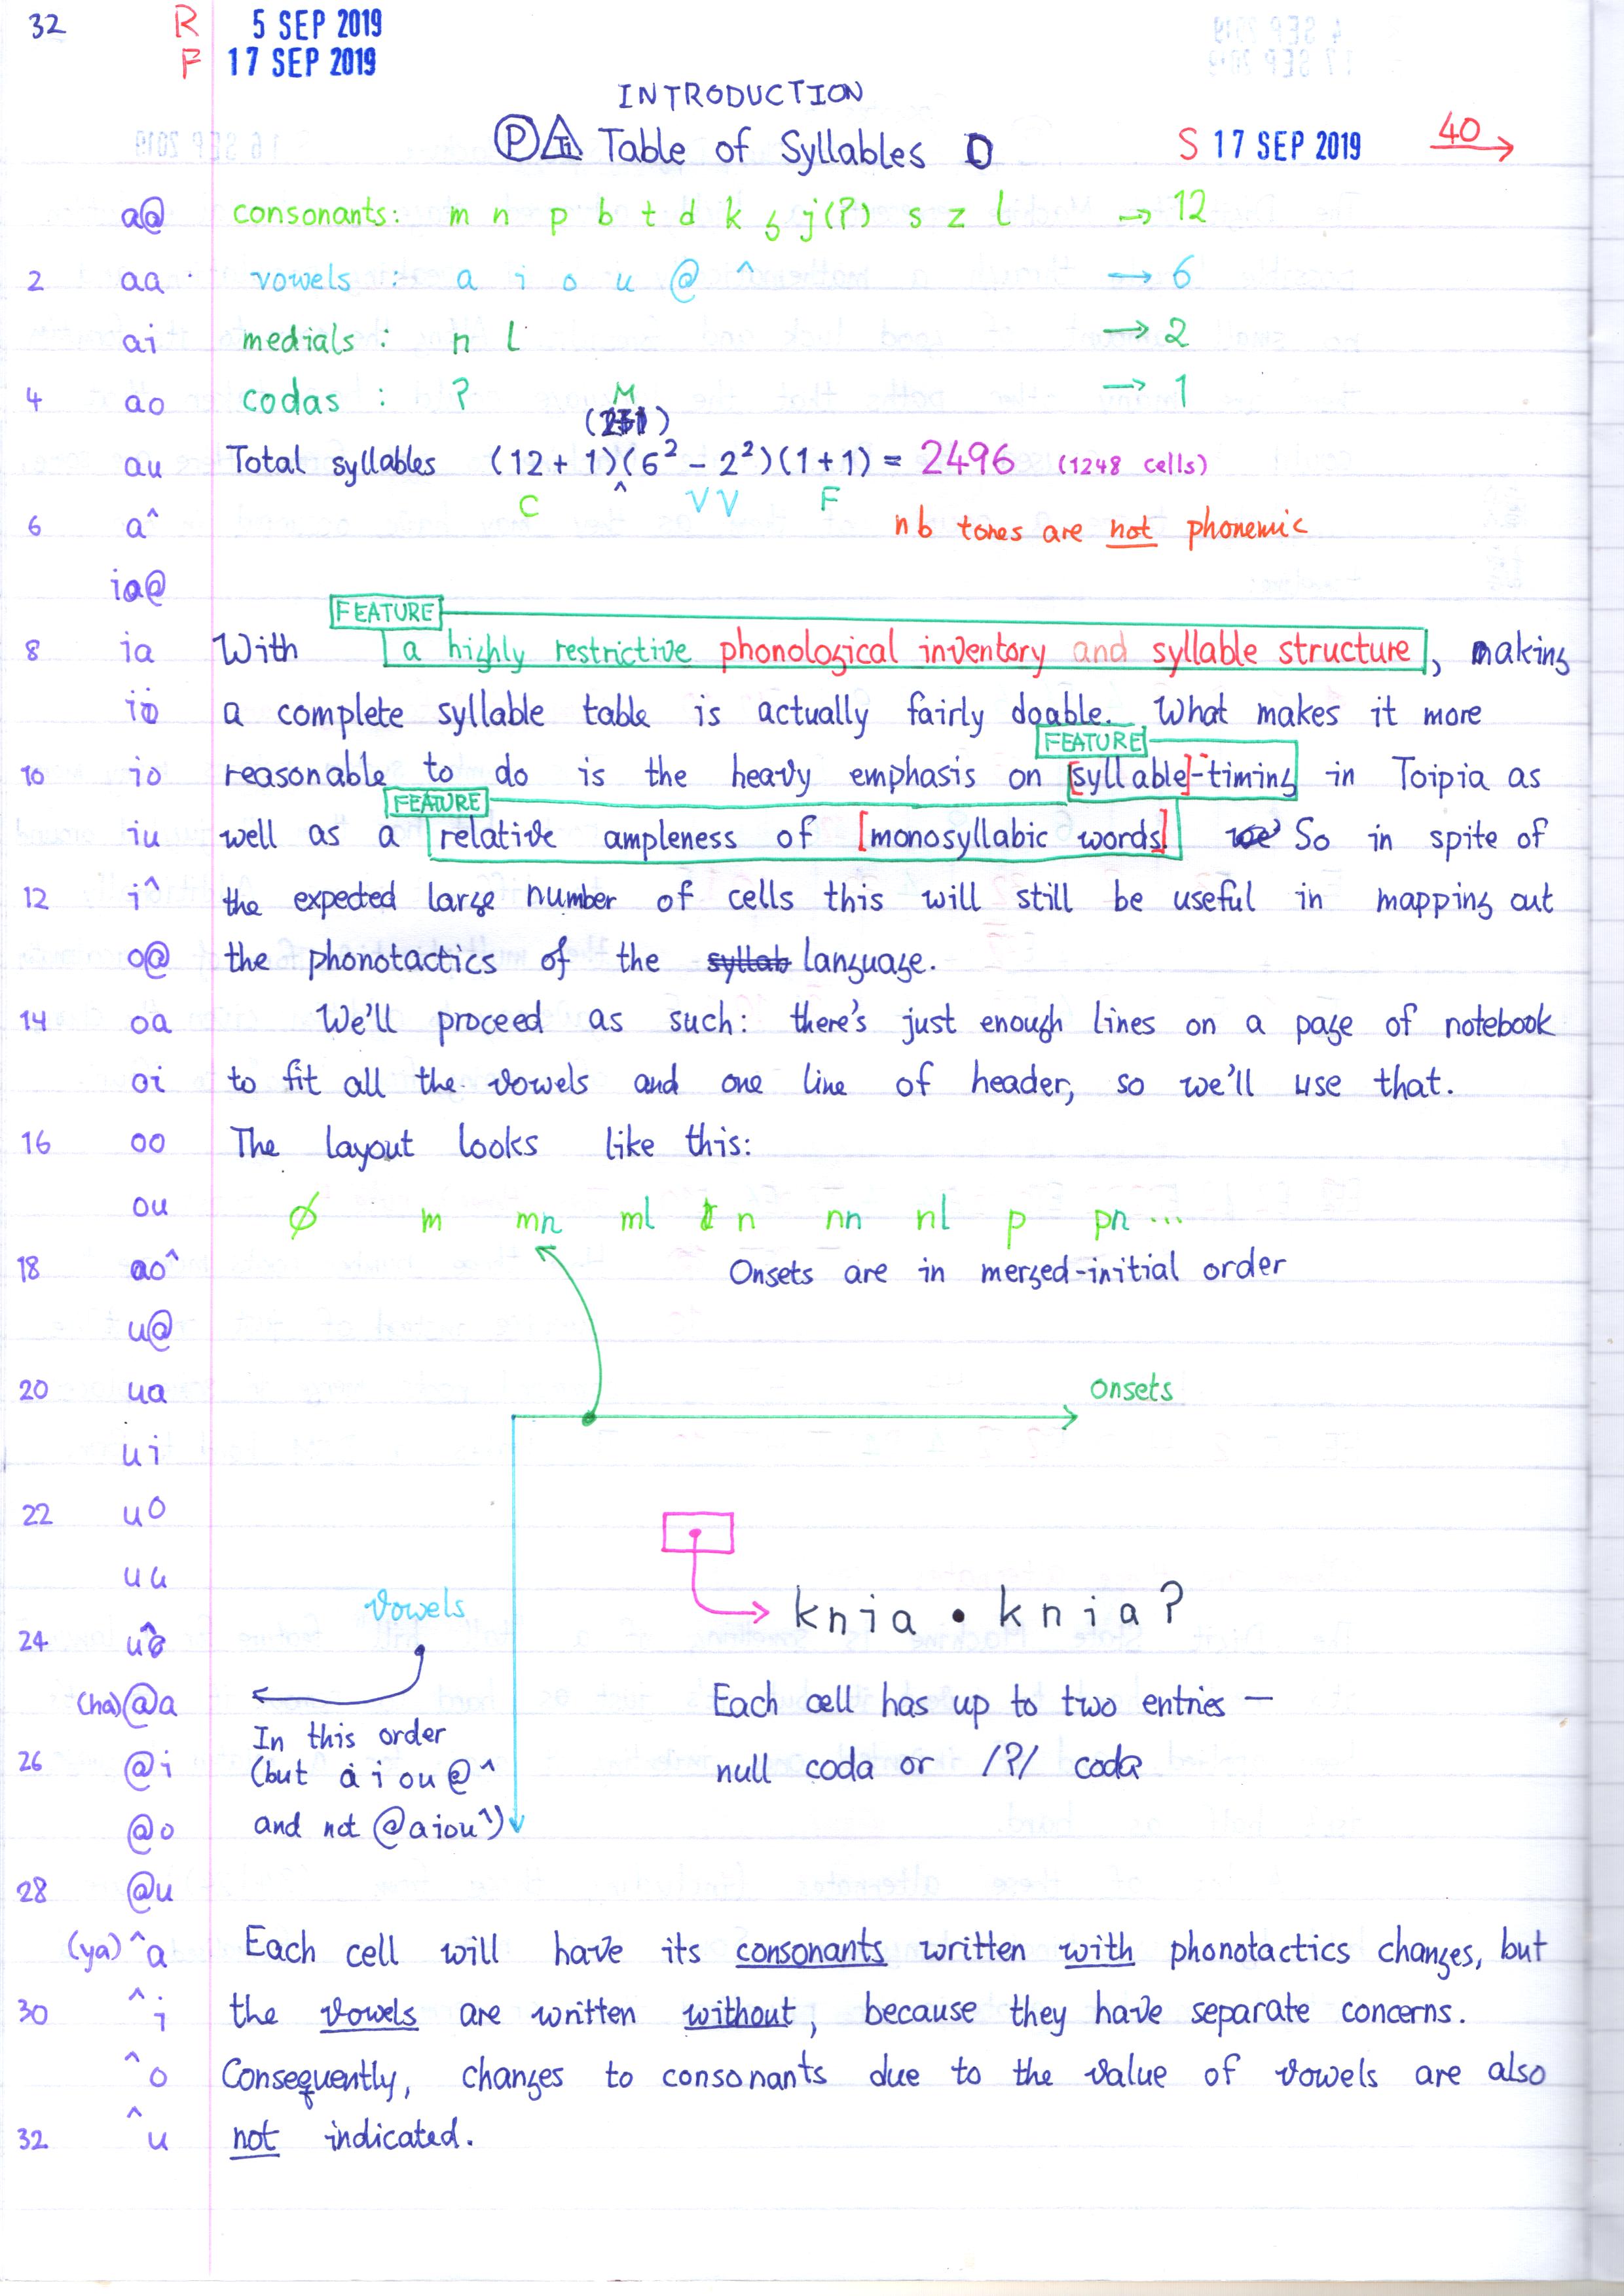 32 R 5 SEP 2019
F 17 SEP 2019
INTRODUCTION
Ⓟ Table of Syllables S 17 SEP 2019 40 →
a@ consonants: m n p b t d k g j(?) s z l → 12
2 aa vowels : a i o u @ ^ → 6
ai medials : n l → 2
4 ao codas : ? → 1
M
au Total syllables (12 + 1)(6² − 2²)(1+1) = 2496 (1248 cells)
C VV F
6 a^ nb tones are not phonemic
ia@
FEATURE
8 ia With a highly restrictive phonological inventory and syllable structure, making
ii a complete syllable table is actually fairly doable. What makes it more
FEATURE
10 io reasonable to do is the heavy emphasis on [syllable]-timing in Toipia as
FEATURE
iu well as a relative ampleness of [monosyllabic words] So in spite of
12 i^ the expected large number of cells this will still be useful in mapping out
o@ the phonotactics of the syllab language.
14 oa We'll proceed as such: there's just enough lines on a page of notebook
oi to fit all the vowels and one line of header, so we'll use that.
16 oo The layout looks like this:
ou ∅ m mn ml n nn nl p pn ...
18 o^ Onsets are in merged-initial order
u@
20 ua onsets
ui
22 uo
uu
vowels knia • knia?
24 u^
(ha) @a Each cell has up to two entries —
In this order
26 @i (but a i o u @ ^ null coda or /?/ coda
@o and not @aiou^)
28 @u
(ya) ^a Each cell will have its consonants written with phonotactics changes, but
30 ^i the vowels are written without, because they have separate concerns.
^o Consequently, changes to consonants due to the value of vowels are also
32 ^u not indicated.